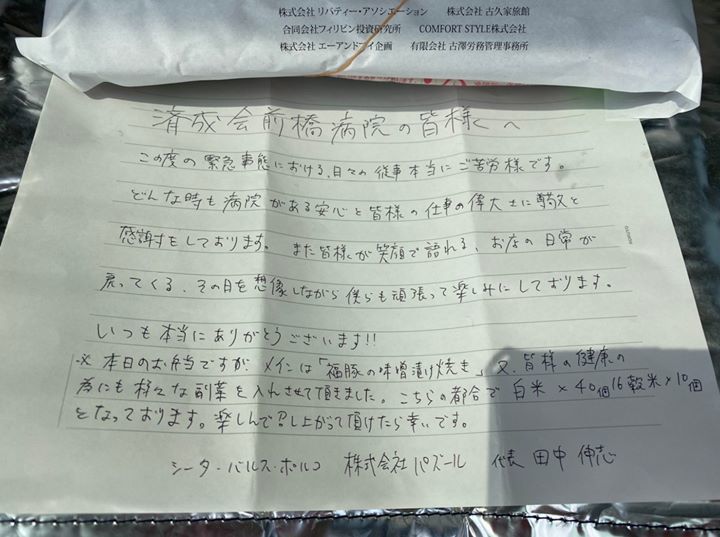 株式会社 リバティー・アソシエーション 株式会社 古久家旅館
合同会社フィリピン投資研究所 COMFORT STYLE株式会社
株式会社 エーアンドアイ企画 有限会社 古澤労務管理事務所
済成会前橋病院の皆様へ
この度の緊急事態における、日々の従事本当にご苦労様です。
どんな時も病院がある安心と皆様の仕事の偉大さに尊敬と
感謝をしております。また皆様が笑顔で語れる、お店の日常が
戻ってくる、その日を想像しながら僕らも頑張って楽しみにしております。
いつも本当にありがとうございます!!
※ 本日のお弁当ですが、メインは「福豚の味噌漬け焼き」又、皆様の健康の
為にも様々な副菜を入れさせて頂きました。こちらの都合で 白米×40個 16穀米×10個
となっております。楽しんで召し上がって頂けたら幸いです。
シータ・バルス・ポルコ 株式会社パズール 代表 田中 伸志